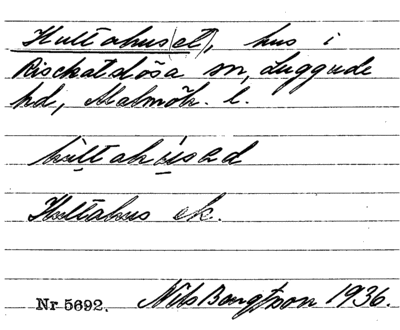 Hultahus(et), hus i
Risekatslösa sn, Luggude
hd, Malmöh. l.
hultahusad
Hultahus ek.
Nr 5692. Nils Bengtsson 1936.